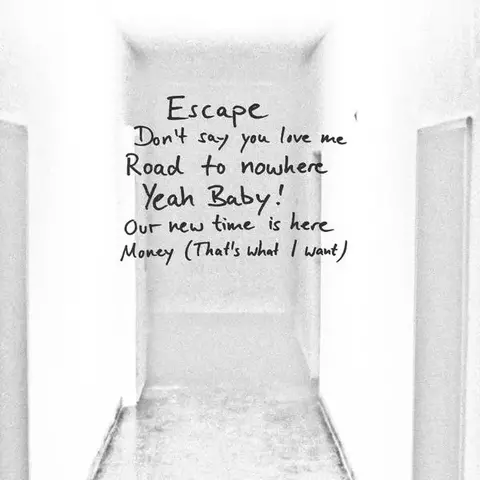 Escape
Don't say you love me
Road to nowhere
Yeah Baby!
Our new time is here
Money (That's what I want)